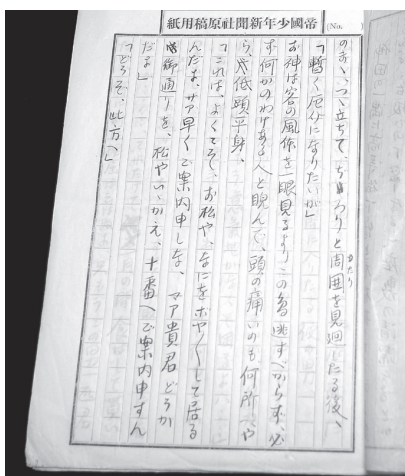 帝國少年新聞社原稿用紙
(No.　　)
のまゝ、つゝ立ちて、ぢろりと周囲を見廻したる後、
あたり
「暫く厄介になりたいが」
お神は客の風体を一眼見るより、この鳥逃すべからず、必
ず何かのわけある人と睨んで、頭の痛いのも何所へや
ら、低頭平身、
「これは、よくこそ、お松や、なにをボヤ〳〵して居る
んだよ、サア早くご案内申しな、マア貴君どうか
御通りを、松やいゝかえ、十番へご案内申すん
だよ」
「どうぞ、此方へ」